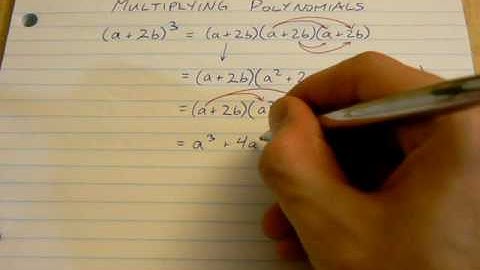 MULTIPLYING POLYNOMIALS
(a+2b)³ = (a+2b)(a+2b)(a+2b)
= (a+2b)(a²+2
= (a+2b)(a²
= a³ + 4a